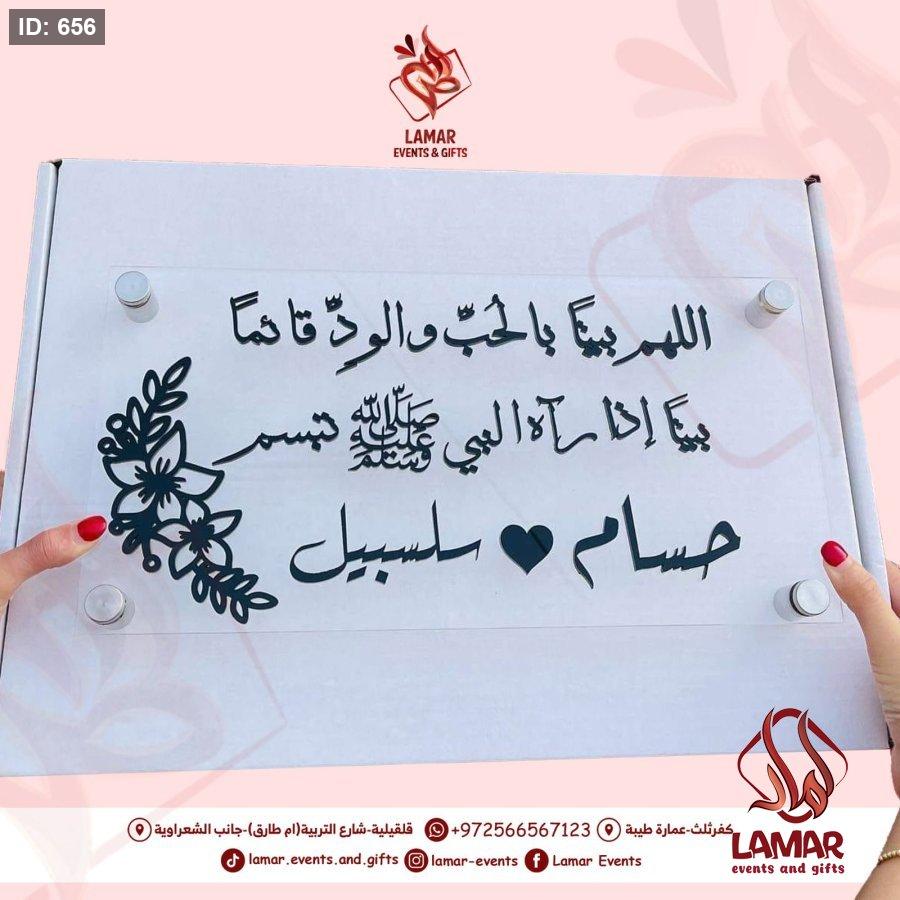 ID: 656
LAMAR
EVENTS & GIFTS
اللهم بيتًا بالحُبّ والوِدِّ قائمًا
بيتًا إذا رآه النبي ﷺ تبسم
حسام سلسبيل
لمار
LAMAR
events and gifts
كفرثلث-عمارة طيبة +972566567123 قلقيلية-شارع التربية(ام طارق)-جانب الشعراوية
lamar.events.and.gifts lamar-events Lamar Events